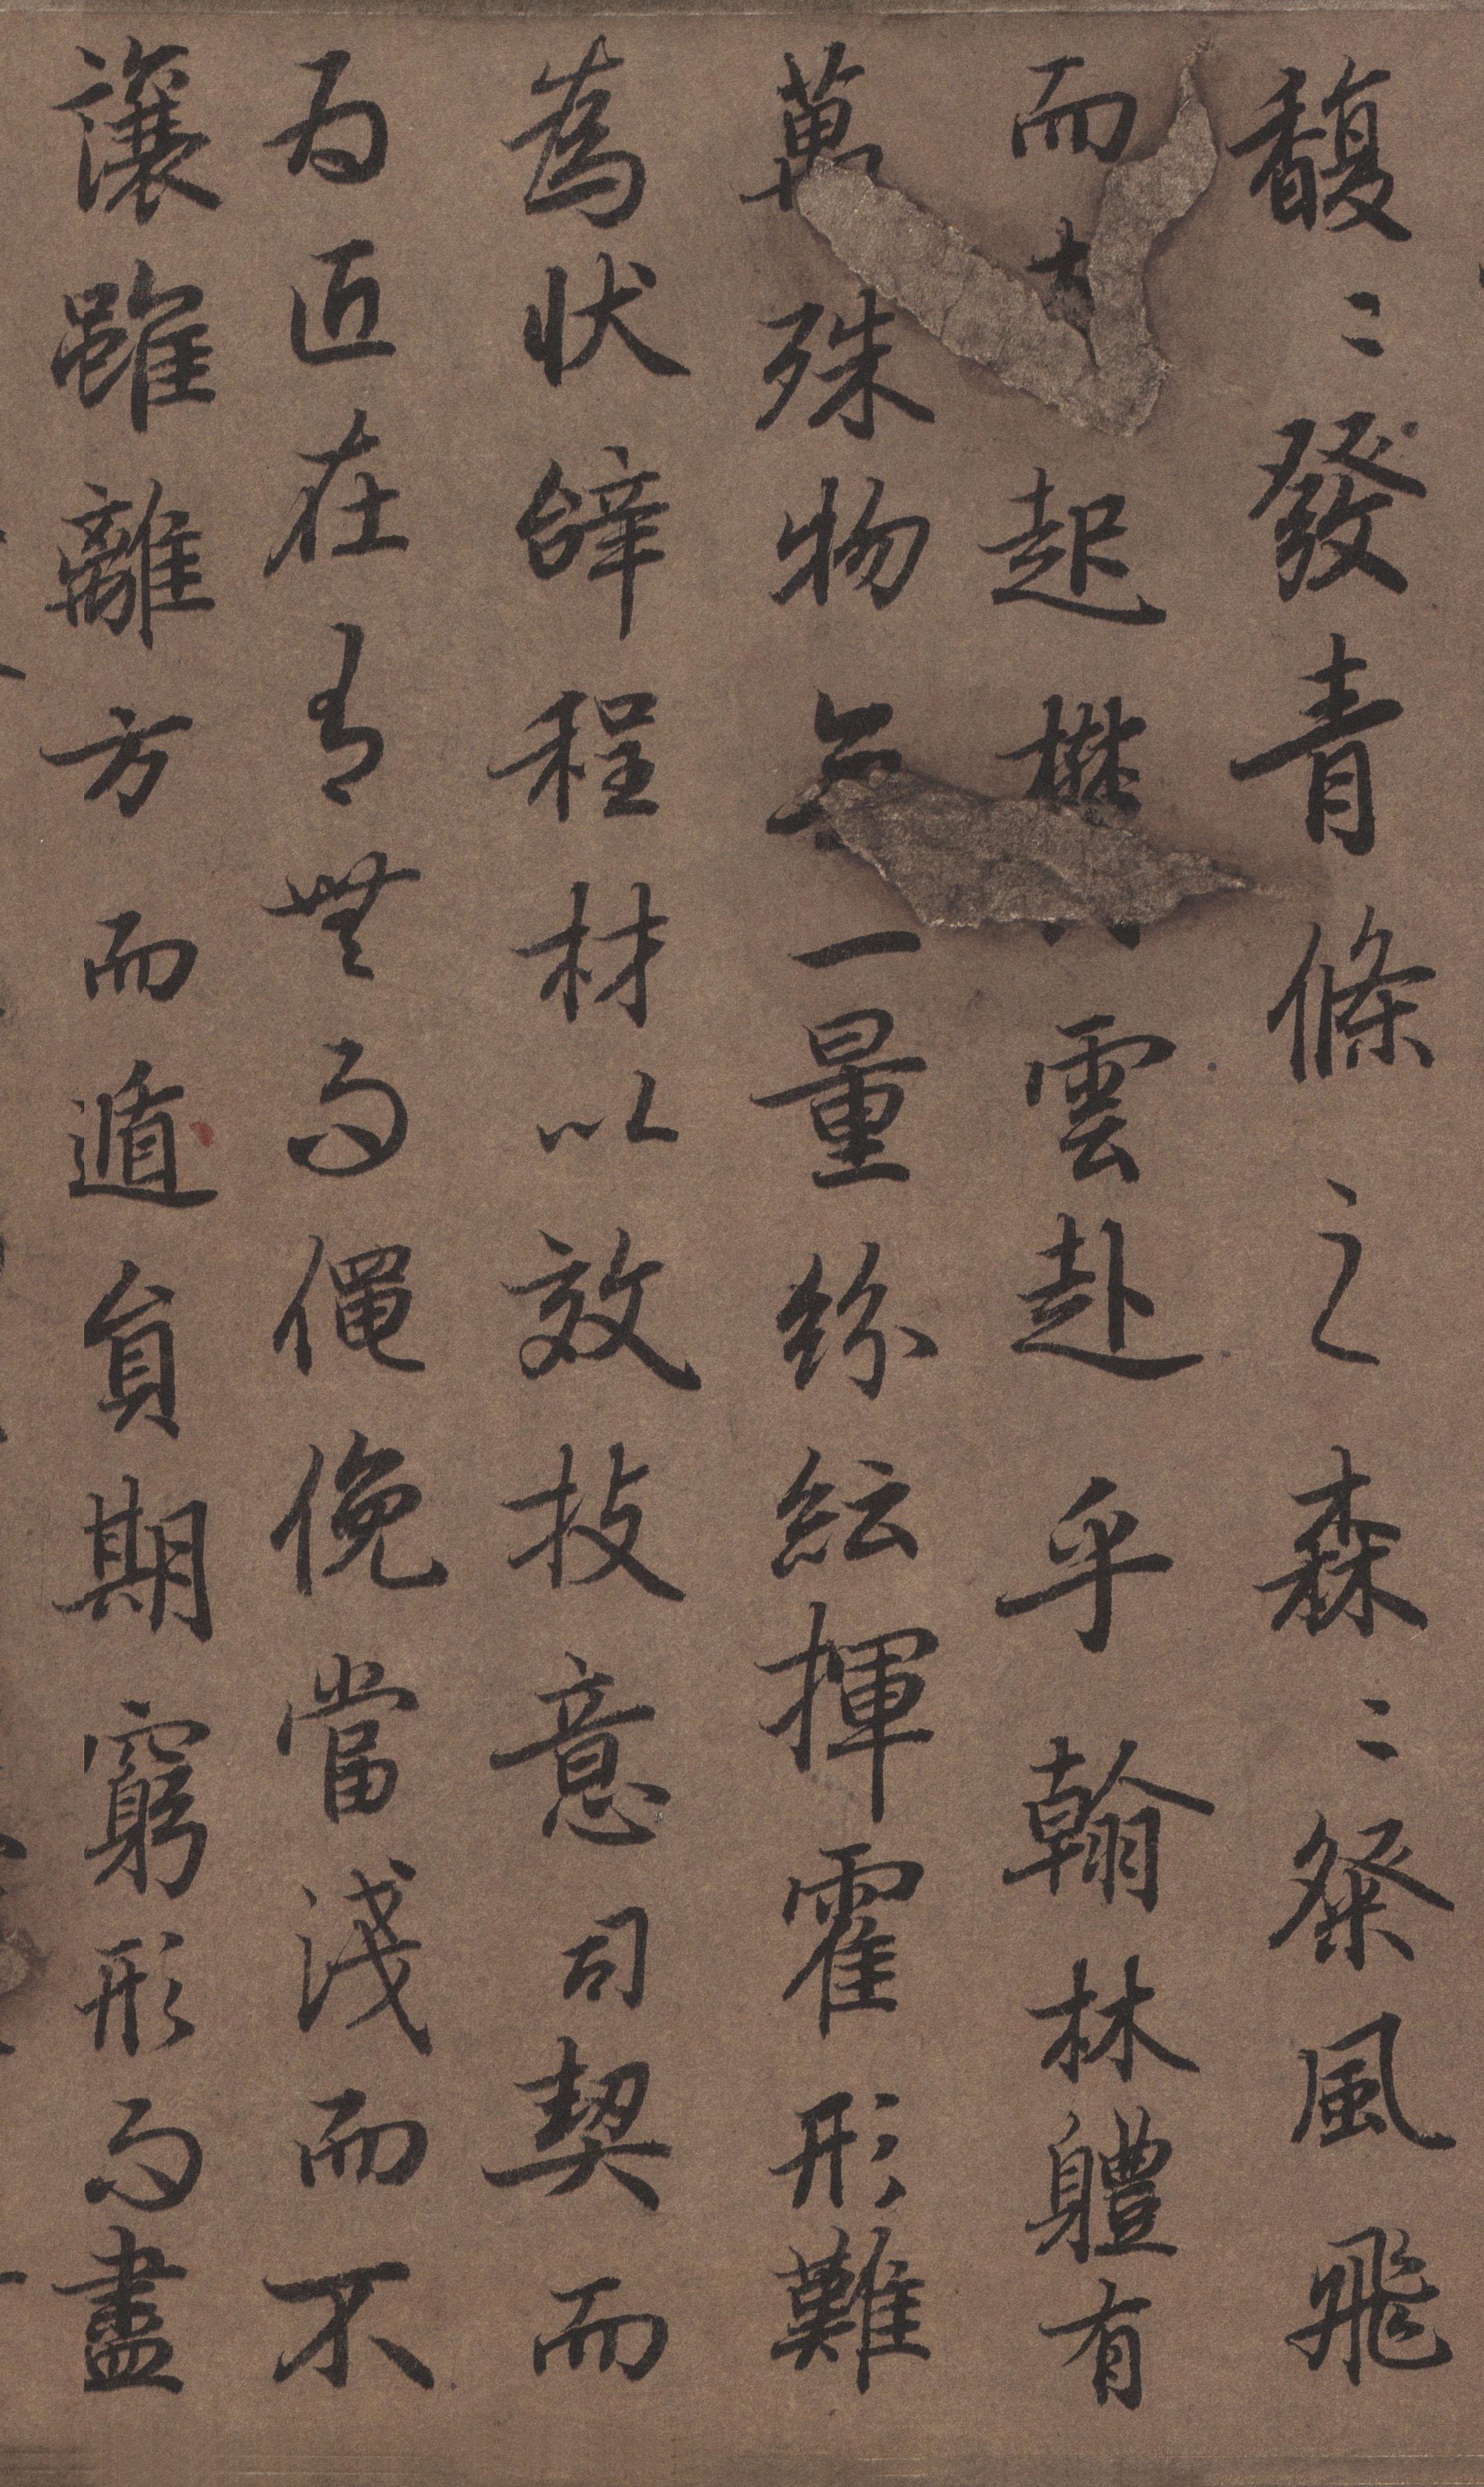 馥〻發青條之森〻粲風飛
而起雲赴乎翰林軆有
萬殊物無一量紛紜揮霍形難
為狀辝程材以效技意司契而
為匠在有無而僶俛當淺而不
讓雖離方而遁員期窮形而盡